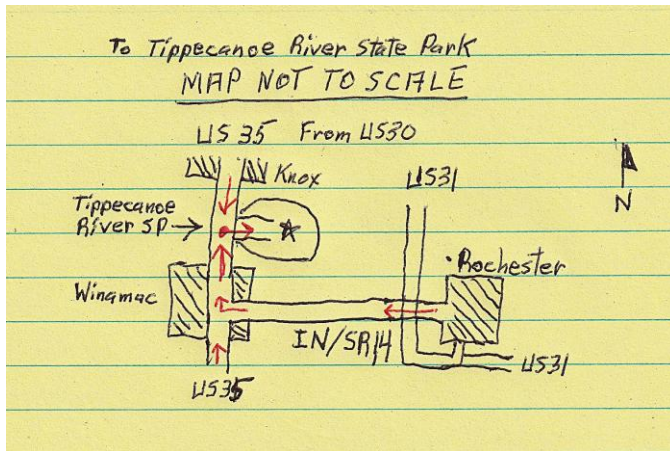 To Tippecanoe River State Park
MAP NOT TO SCALE
US 35 From US30
Knox
US31
Tippecanoe
River SP
N
Rochester
Winamac
IN/SR14
US31
US35